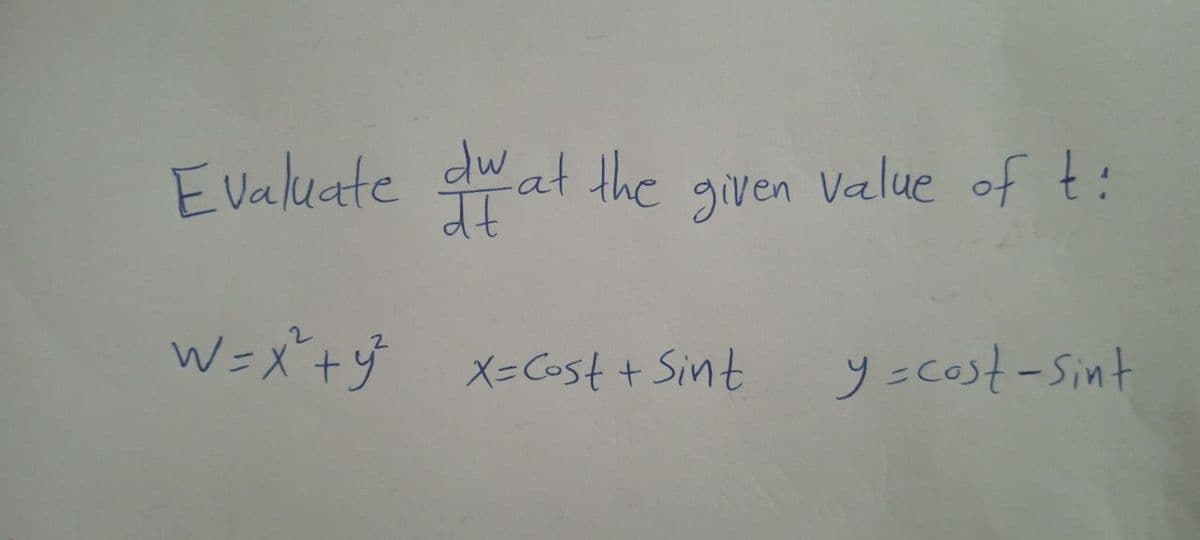 Evaluate dw/dt at the given value of t:
W=x²+y² x=Cost + Sint y=cost-sint